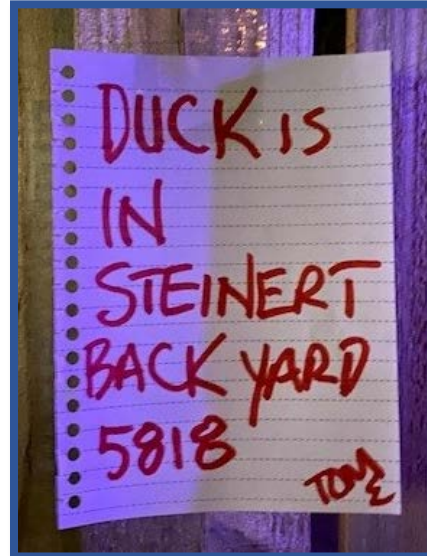 DUCK IS
IN
STEINERT
BACK YARD
5818
TOM E